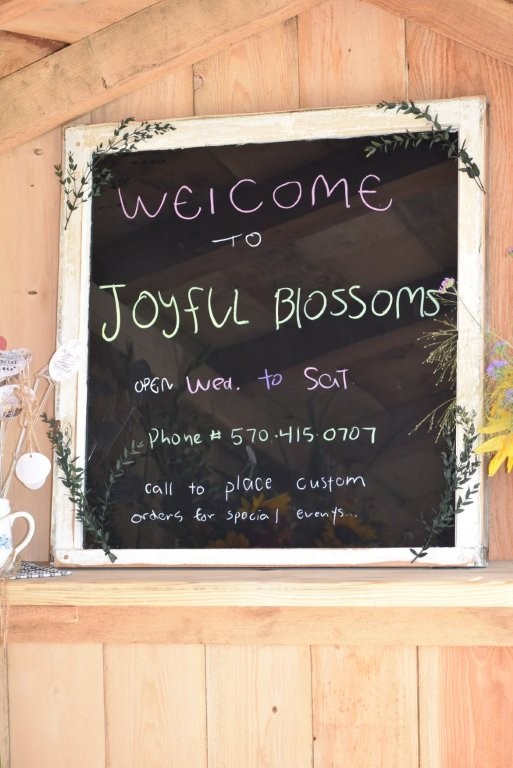 WELCOME
TO
JOYFUL BLOSSOMS
OPEN Wed. to SAT
Phone # 570.415.0707
call to place custom
orders for special events...